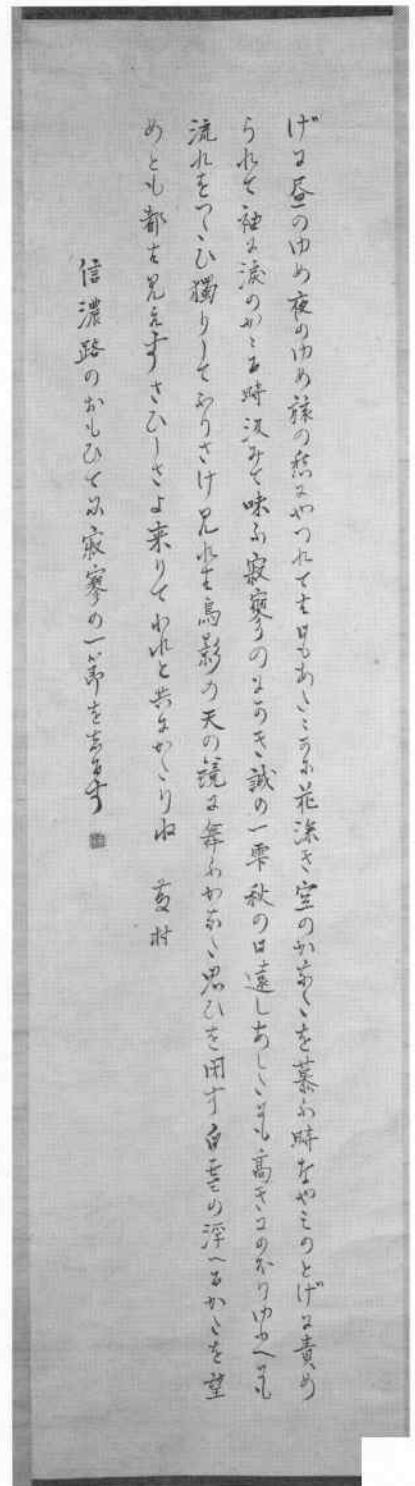 げに昼のゆめ夜のゆめ旅の愁にやつれては日もあたゝかに花深き空のかなたを慕ふ時なやみのとげに責め
られて袖に涙のかゝる時汲みて味ふ寂寥のにがき誠の一雫秋の日遠しあしたにも高きにのぼりゆふべにも
流れをつたひ獨りしてふりさけ見れは鳥影の天の鏡に舞ふかなた思ひを閉す白雲の浮へるかたを望
めとも都は見えすさひしさよ来りてわれと共にかたりね 藤村
信濃路のおもひてに寂寥の一節をしるす